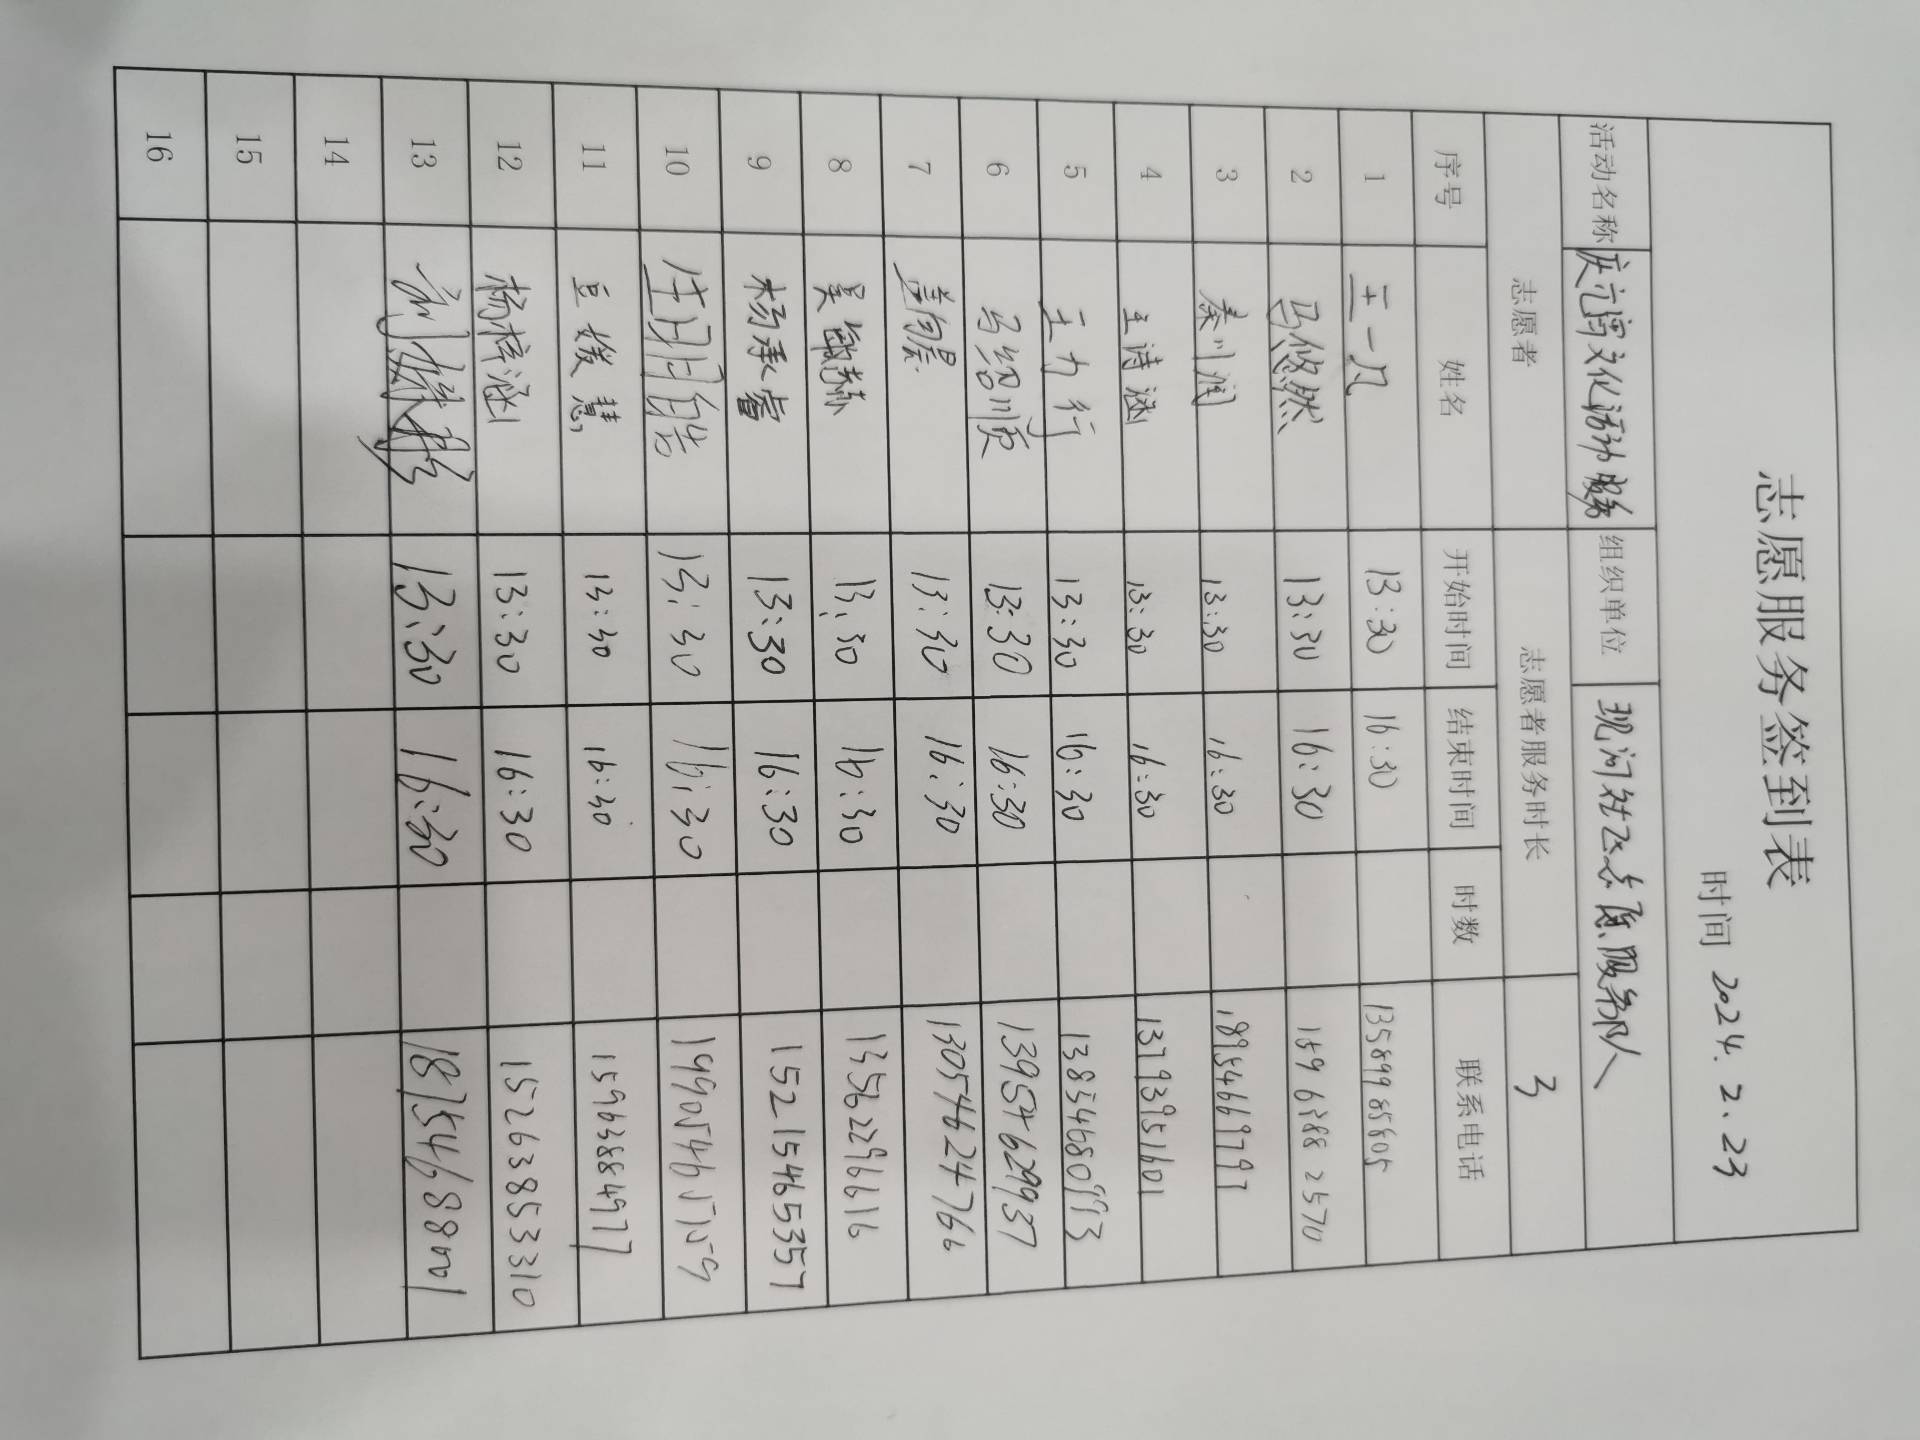 志愿服务签到表
时间 2024.2.23
活动名称 庆元宵文化活动服务 组织单位 现河社区志愿服务队
志愿者 志愿者服务时长 3
序号 姓名 开始时间 结束时间 时数 联系电话
1 王一凡 13:30 16:30 13589985805
2 马悠然 13:30 16:30 15963882570
3 秦川润 13:30 16:30 18954669797
4 王诗涵 13:30 16:30 13793951601
5 王力行 13:30 16:30 13854680993
6 马绍川页 13:30 16:30 13954629937
7 13:30 16:30 13054624766
8 吴毓赫 13:30 16:30 13562296616
9 杨承睿 13:30 16:30 15215465357
10 任明皓 13:30 16:30
11 豆媛慧 13:30 16:30 15963884977
12 杨梓涵 13:30 16:30 15263853310
13 13:30 16:30
14
15
16